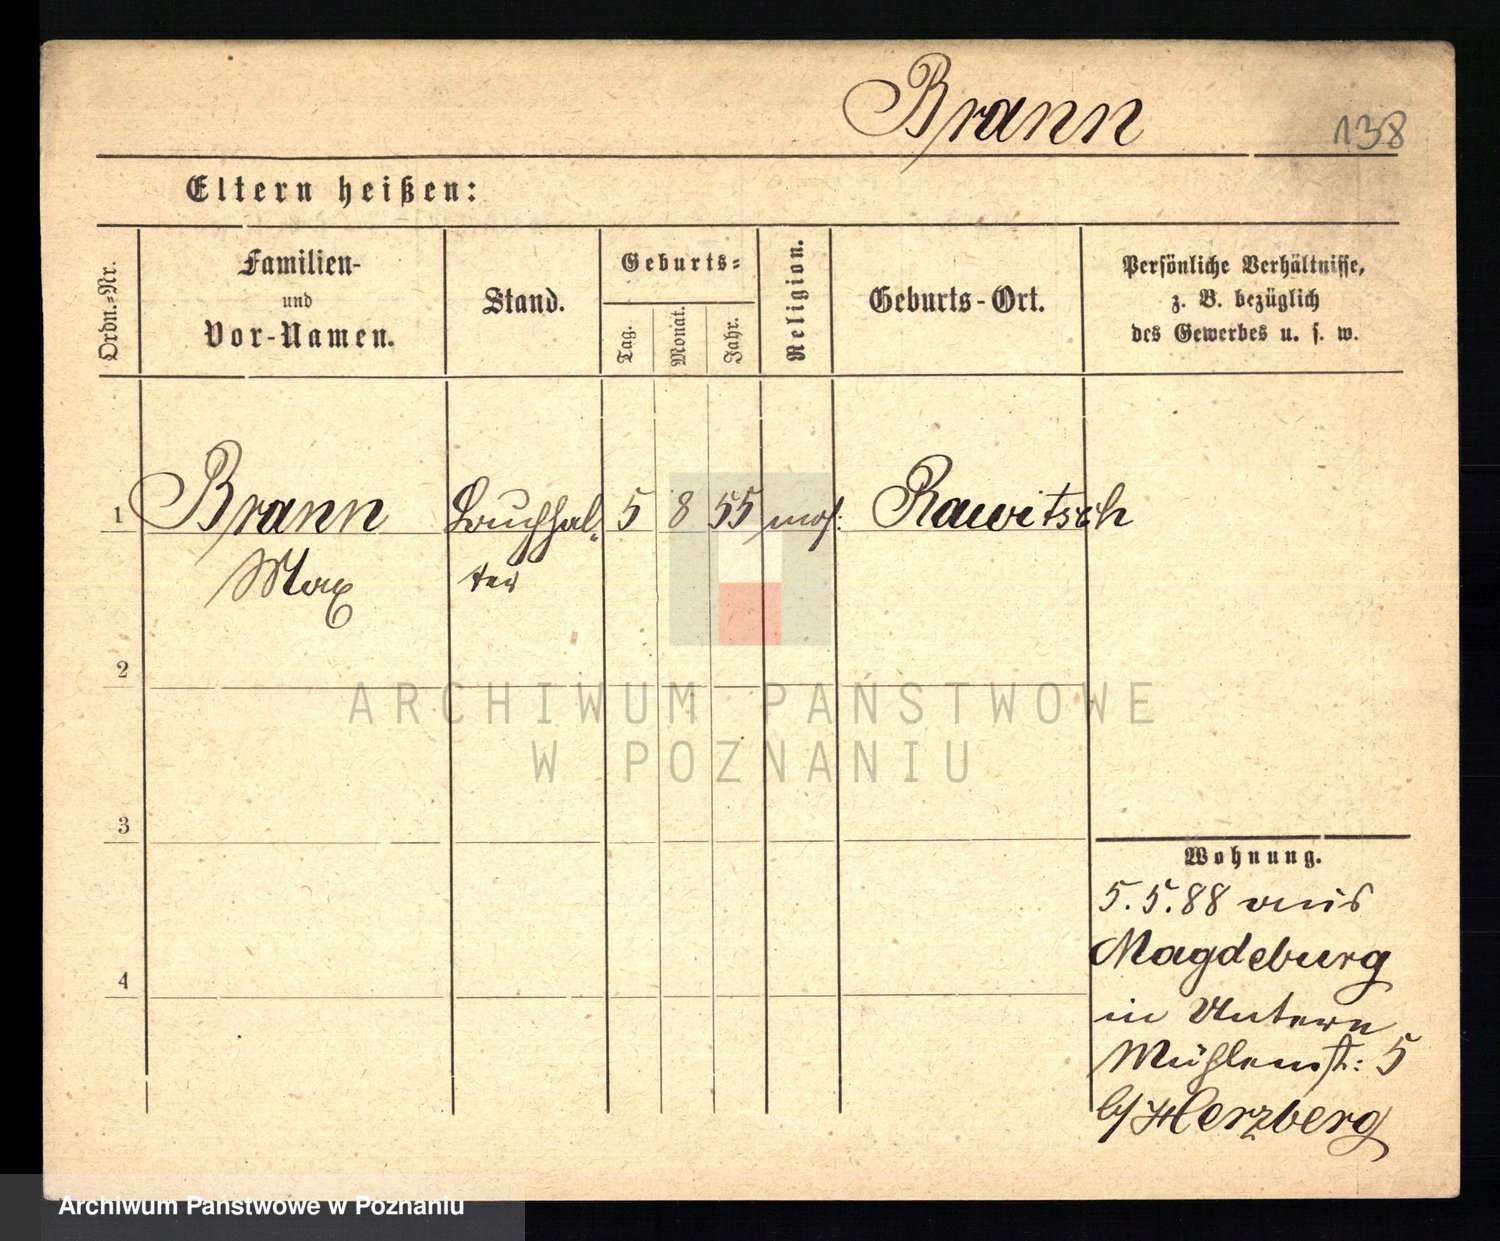 Brann
138
Eltern heißen:
Ordn.-Nr.
Familien-
und
Vor-Namen.
Stand.
Geburts-
Tag.
Monat.
Jahr.
Religion.
Geburts-Ort.
Persönliche Verhältnisse,
z. B. bezüglich
des Gewerbes u. s. w.
1 Brann Buchhal- 5 8 55 mos. Rawitsch
Max ter
2
ARCHIWUM PAŃSTWOWE
W POZNANIU
3
Wohnung.
5.5.88 aus
Magdeburg
4
in Untern
Mühlenst: 5
b/Herzberg
Archiwum Państwowe w Poznaniu